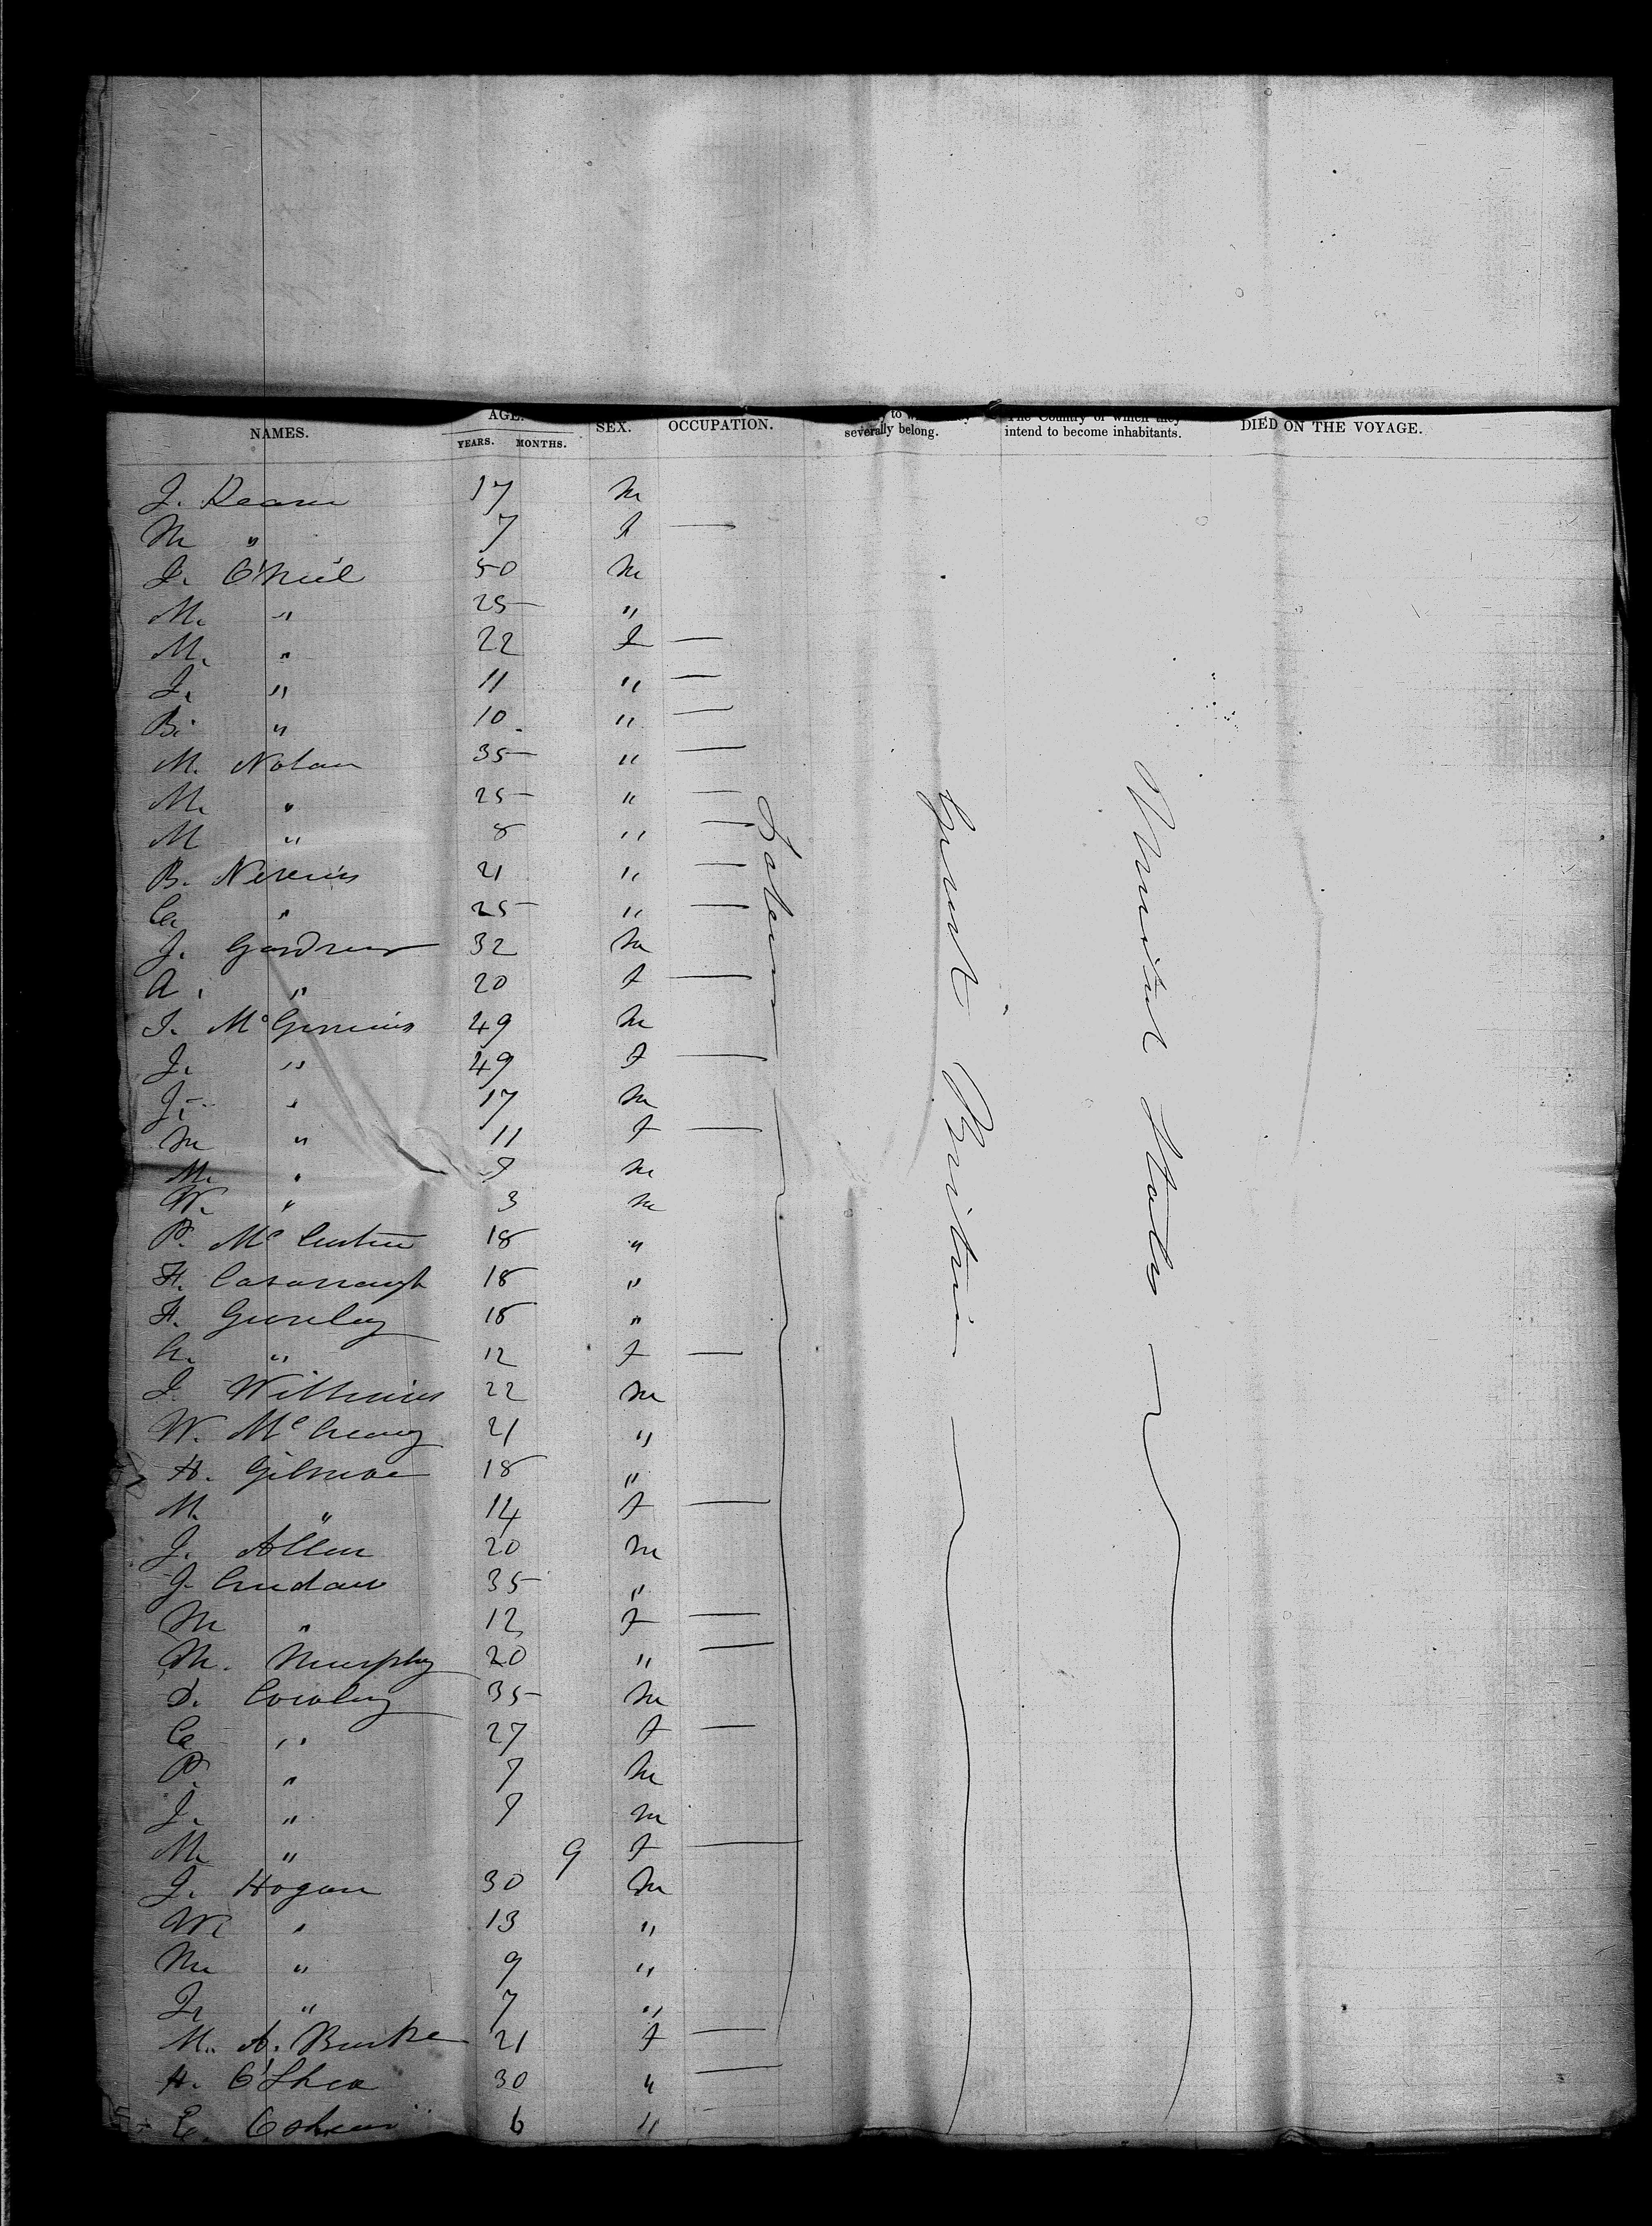 NAMES. AGE. YEARS. MONTHS. SEX. OCCUPATION. severally belong. The Country of which they intend to become inhabitants. DIED ON THE VOYAGE.
J. 17 m
M " 7 f —
J. O'Neil 50 m
M. " 25 "
M. " 22 f —
J. " 11 " —
B. " 10 " —
M. Nolan 35 " —
M. " 25 " —
M " 8 " —
B. 21 " —
Ca " 25 " —
J. Gardner 32 m
A. " 20 f —
J. McGinnis 49 m
J. " 49 f —
J. " 17 m
M " 11 f —
M. " 9 m
W. " 3 m
P. 18 "
H. Cavanaugh 18 "
H. 18 "
" 12 f —
J. 22 m
W. 21 "
H. Gilmore 18 "
M. " 14 f —
J. Allen 20 m
J. 35 "
M " 12 f —
M. Murphy 20 " —
D. 35 m
Ca " 27 f —
P. " 7 m
J. " 9 m
M " 9 f —
J. Hogan 30 m
W. " 13 "
M " 9 "
J. " 7 "
M. A. Burke 21 f —
H. O'Shea 30 " —
E. 6 "
Laborers
Great Britain
United States